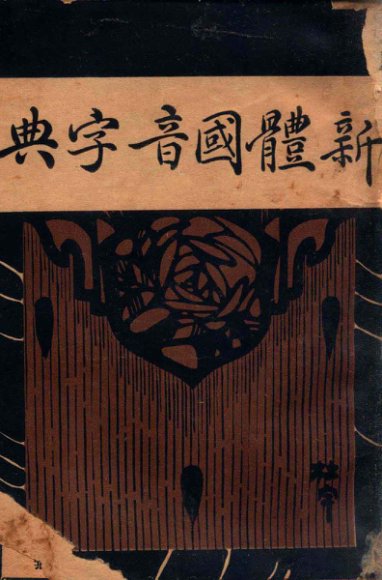 新體國音字典